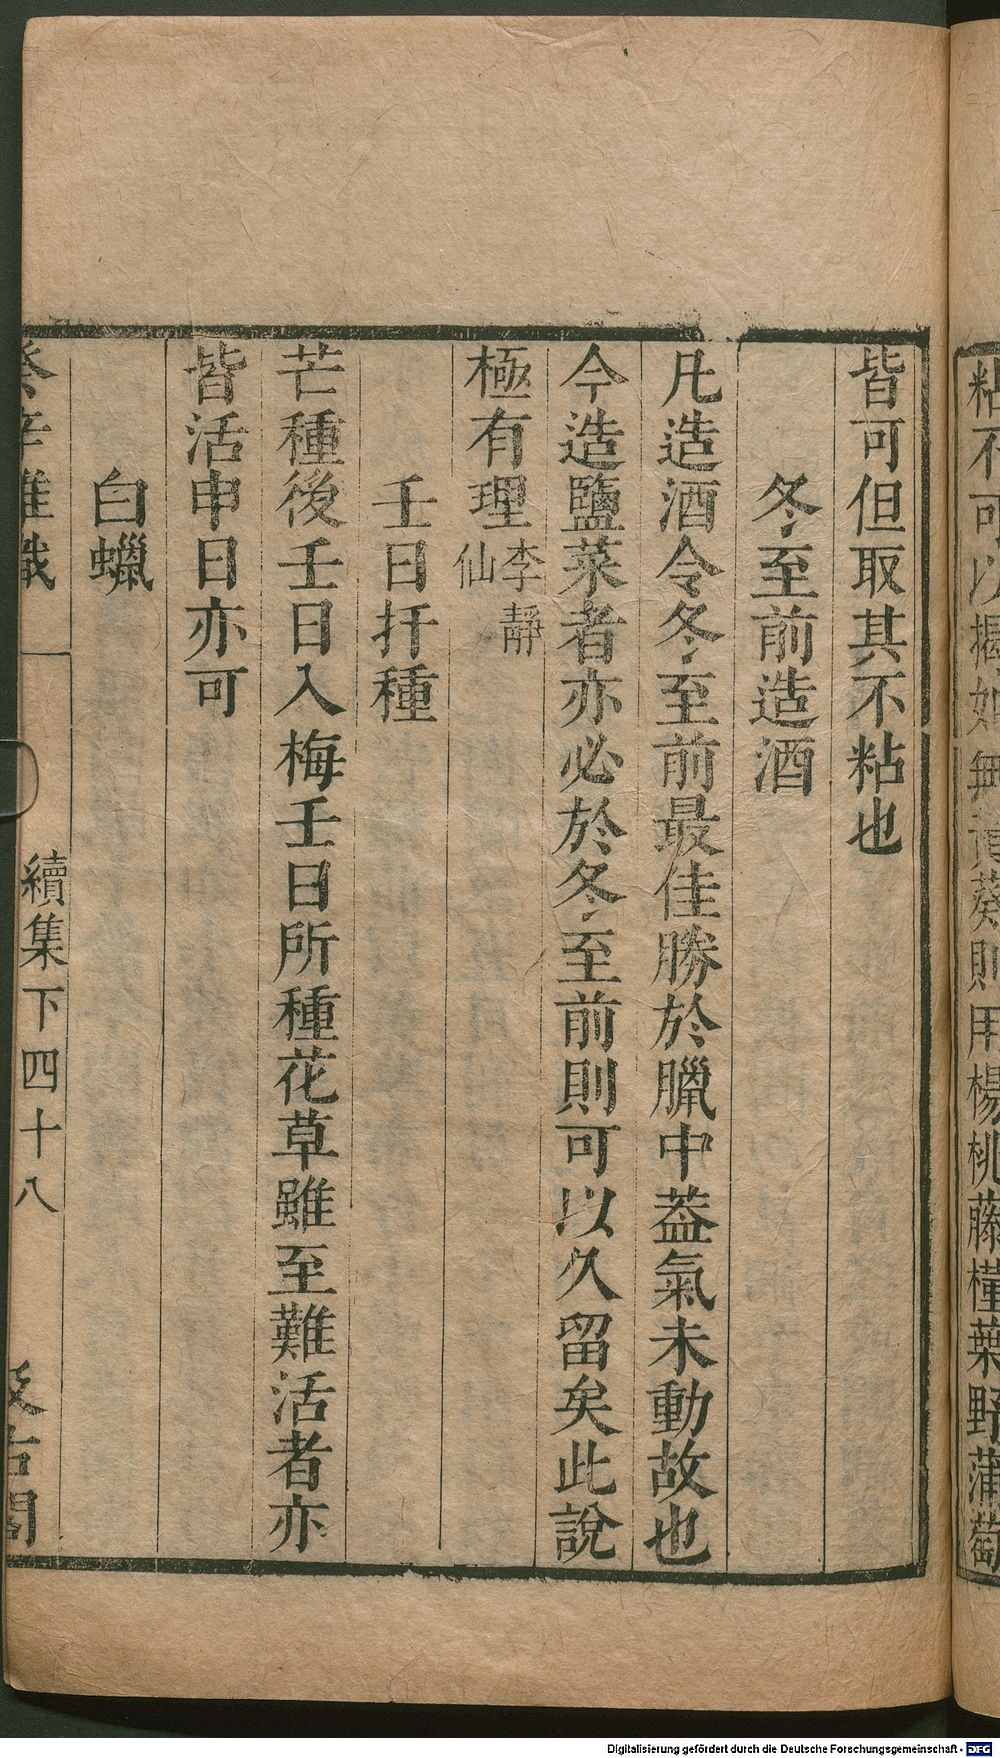 粘不可以揭如無黃葵則用楊桃藤槿葉野蒲萄
皆可但取其不粘也
冬至前造酒
凡造酒令冬至前最佳勝於臘中葢氣未動故也
今造鹽菜者亦必於冬至前則可以久留矣此說
極有理李靜仙
壬日扦種
芒種後壬日入梅壬日所種花草雖至難活者亦
皆活申日亦可
白蠟
癸辛雜識
續集下四十八
汲古閣
Digitalisierung gefördert durch die Deutsche Forschungsgemeinschaft - DFG